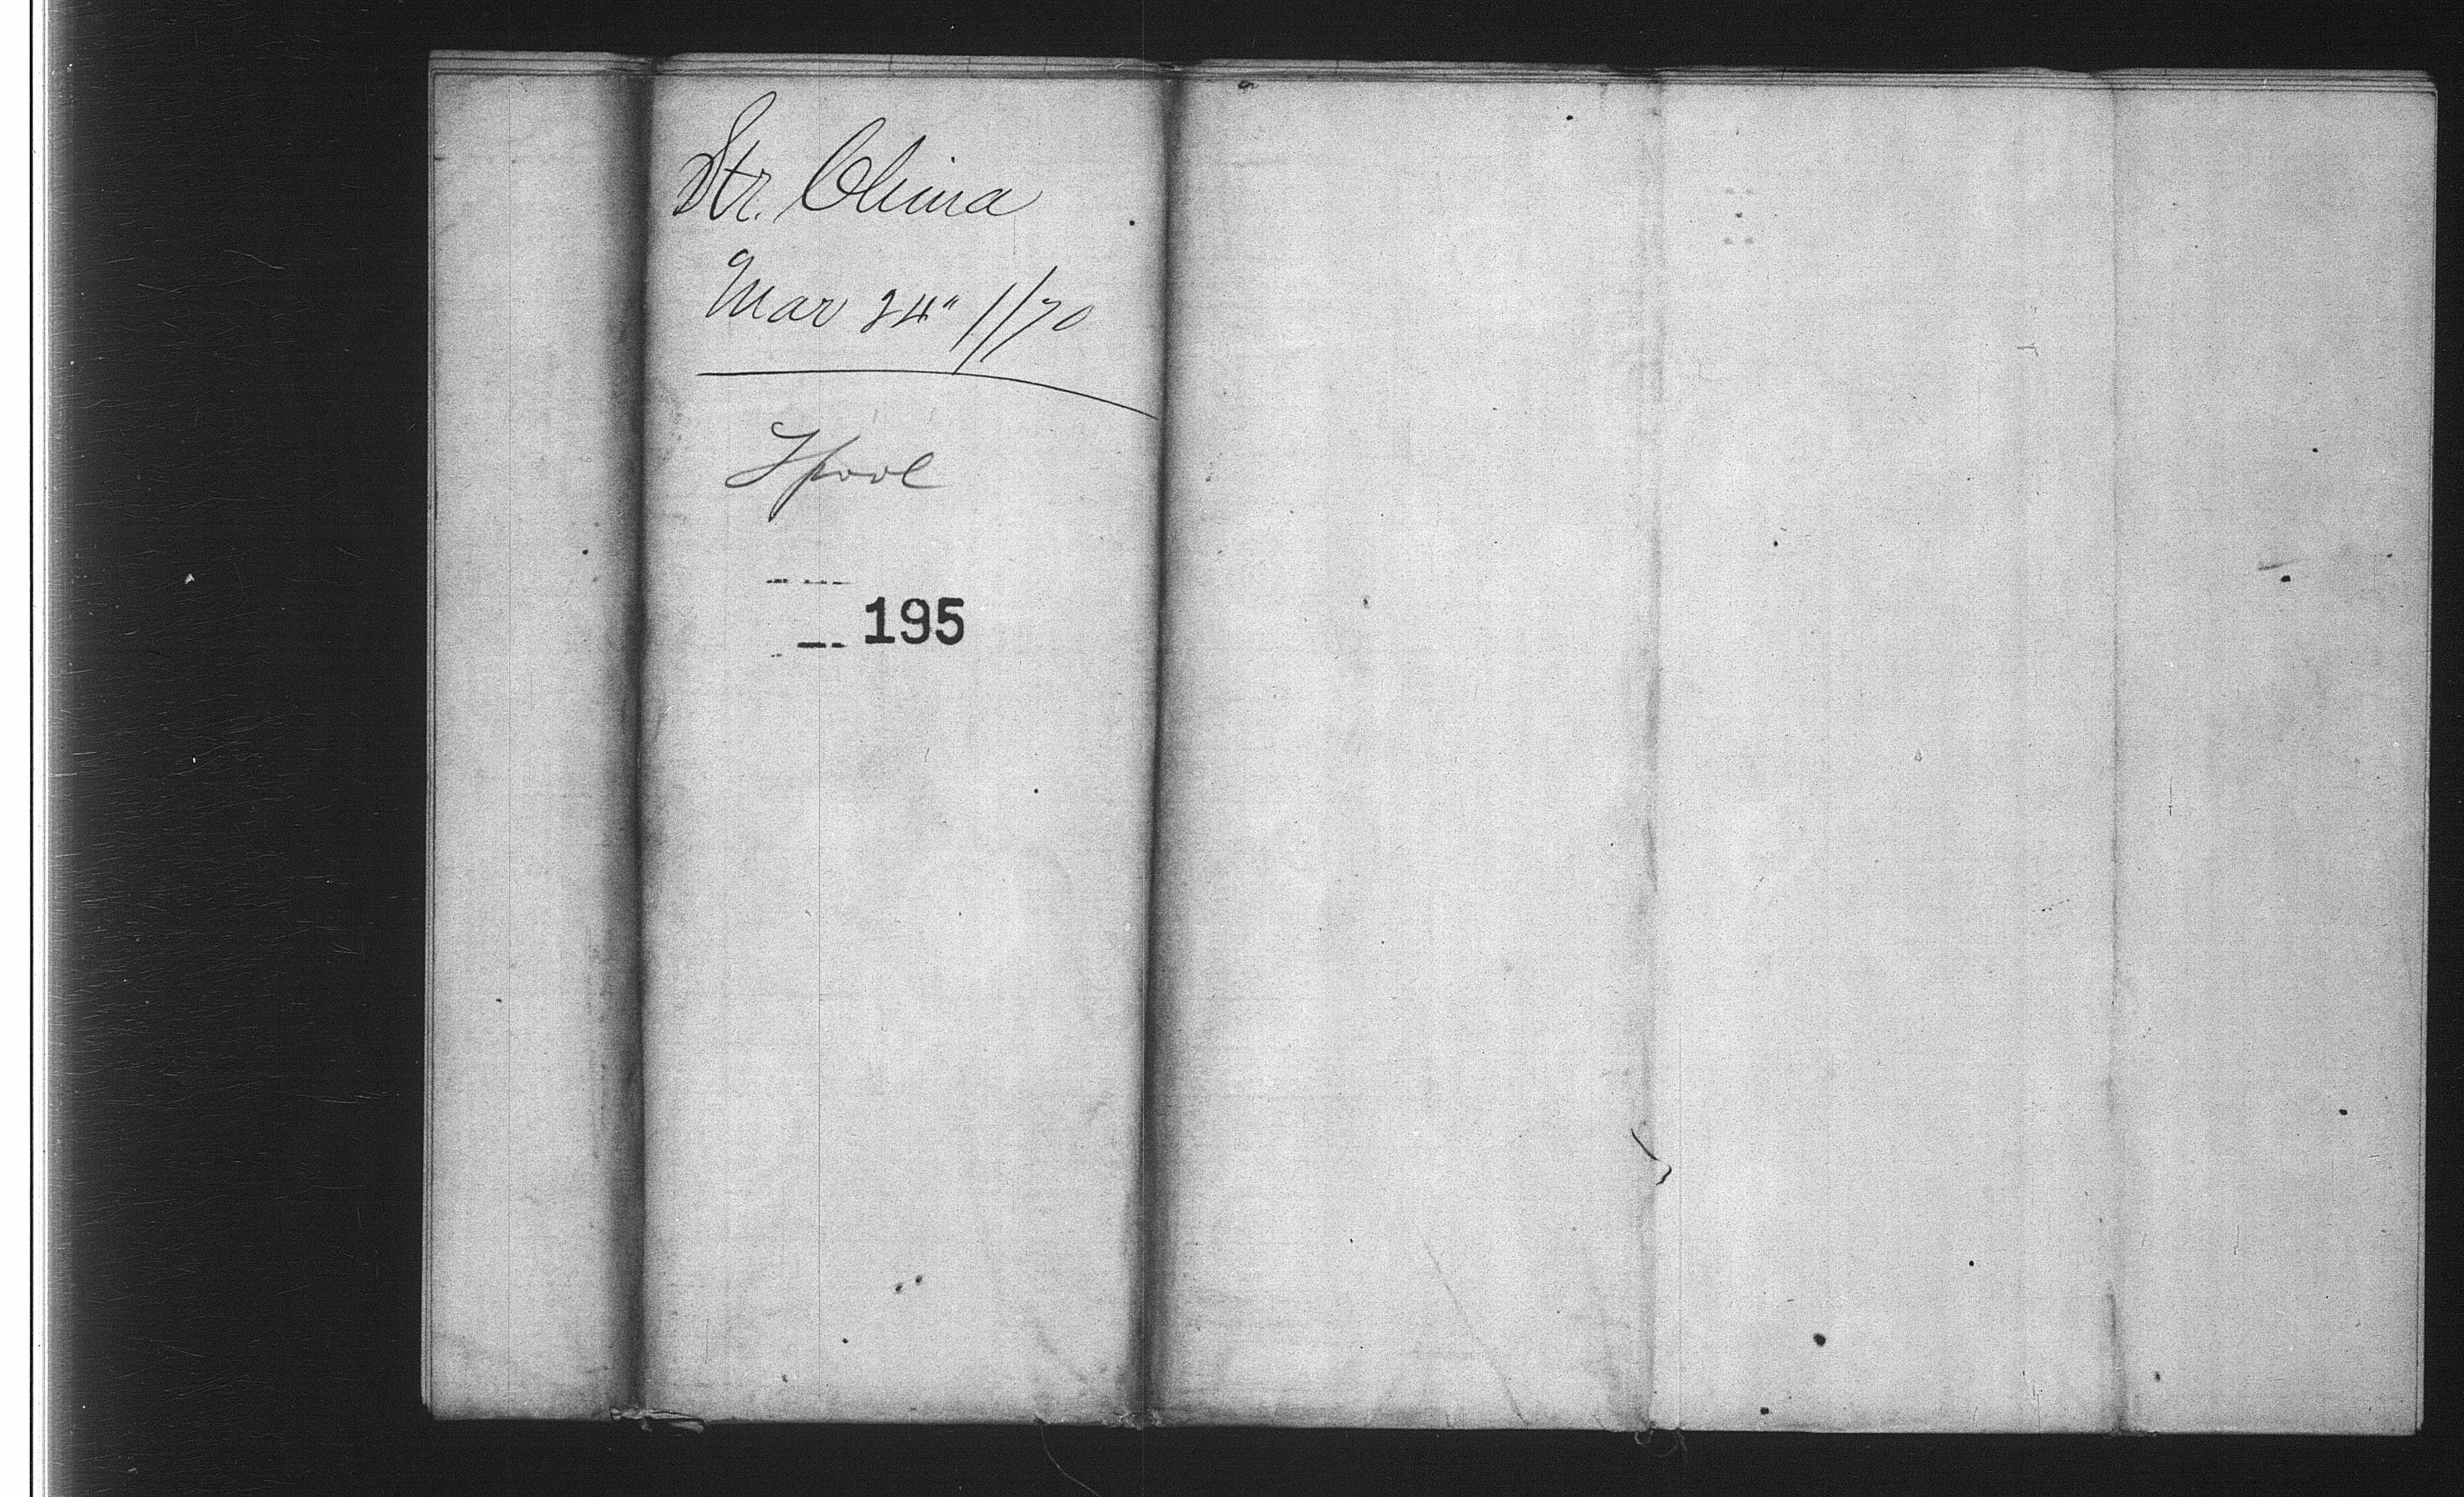 Str. China
Mar 24" 1/70
Lpool
195